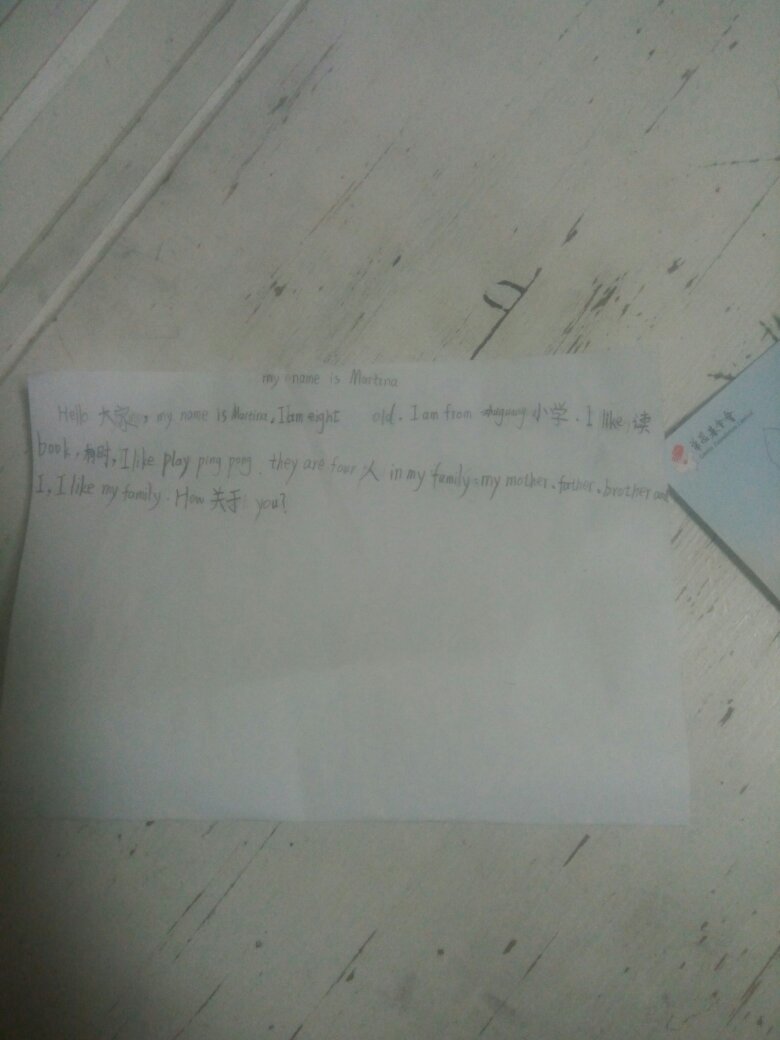 my name is Martina
Hello 大家, my name is Martina. I am eight old. I am from 小学. I like 读
book, 有时, I like play ping pong. they are four 人 in my family、my mother、father、brother and
I, I like my family. How 关于 you?
基金會